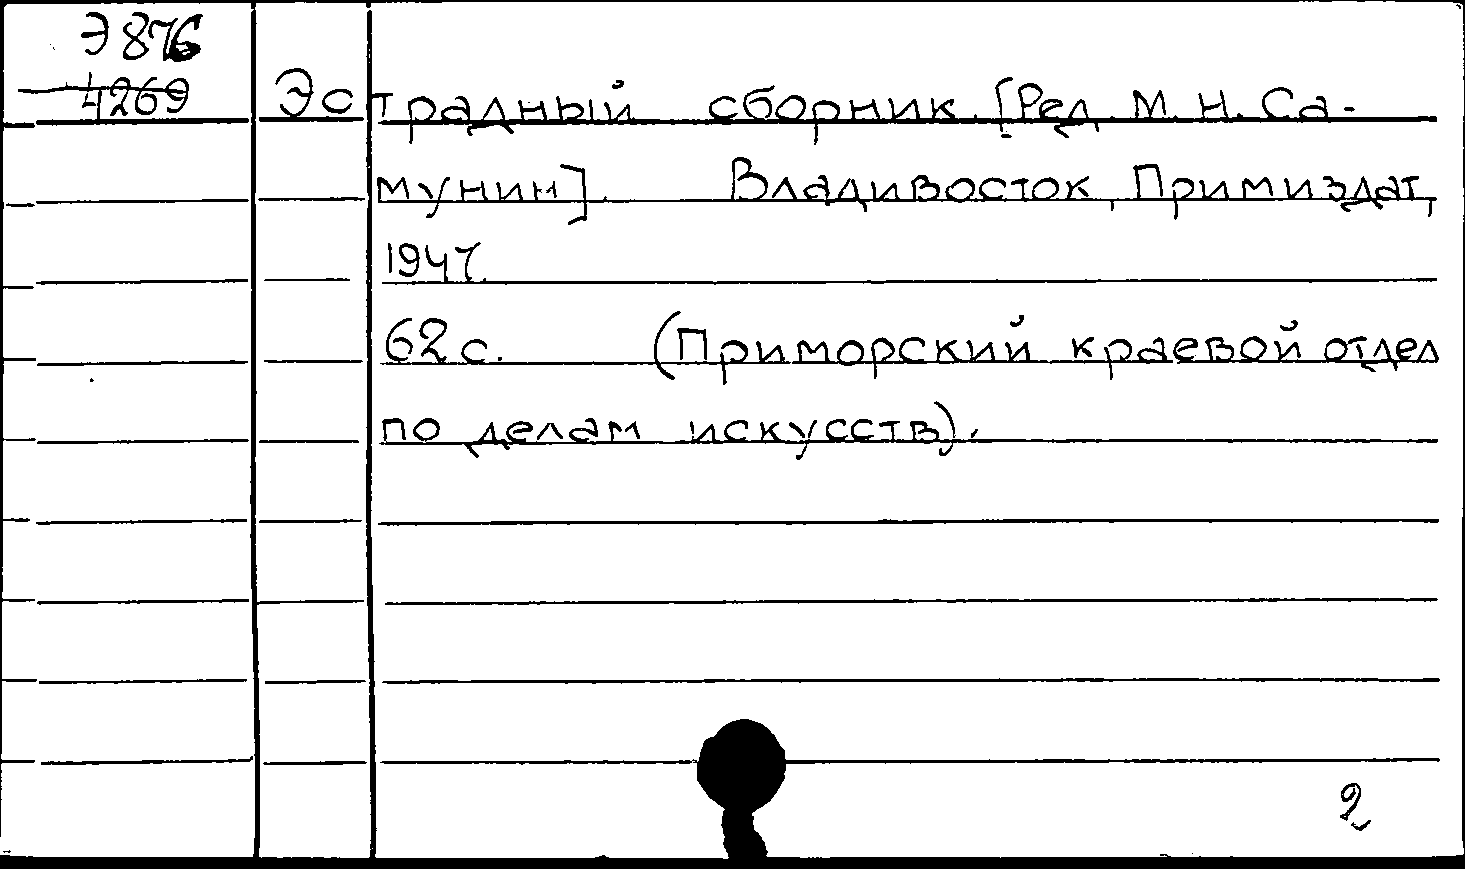 Э876
4269
Эстрадный сборник. [Ред. М. Н. Са-
мунин]. Владивосток, Примиздат,
1947.
62 с. (Приморский краевой отдел
по делам искусств).
2